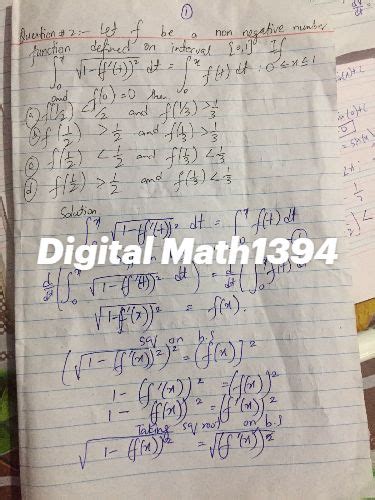 ①
Question # 2:- Let f be a non negative number
function defined on interval [0,1]. If
∫₀ˣ √(1-(f'(t))² dt = ∫₀ˣ f(t) dt ; 0 ≤ x ≤ 1
and f(0) = 0 then
(a) f(1/2) < 1/2 and f(1/3) > 1/3
(b) f(1/2) > 1/2 and f(1/3) > 1/3
(c) f(1/2) < 1/2 and f(1/3) < 1/3
(d) f(1/2) > 1/2 and f(1/3) < 1/3
Solution
∫₀ˣ √(1-(f'(t))² dt = ∫₀ˣ f(t) dt
Digital Math1394
d/dt (∫₀ˣ √(1-(f'(t))² dt) = d/dt (∫₀ˣ f(t) dt)
√(1-(f'(x))² = f(x).
sq on b.s
(√(1-(f'(x))²)² = (f(x)]²
1 - (f'(x))² = (f(x)]²
1 - (f(x))² = (f'(x)]²
Taking sq root on b.s
√(1 - (f(x))² = √(f'(x))²